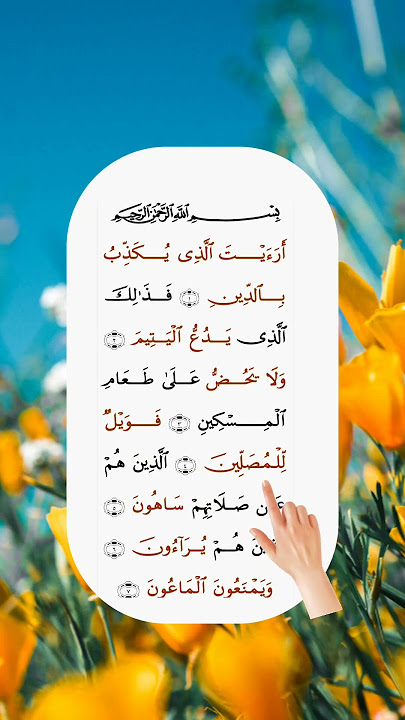 بِسْمِ ٱللَّهِ ٱلرَّحْمَٰنِ ٱلرَّحِيمِ
أَرَءَيْتَ ٱلَّذِى يُكَذِّبُ
بِٱلدِّينِ ١ فَذَٰلِكَ
ٱلَّذِى يَدُعُّ ٱلْيَتِيمَ ٢
وَلَا يَحُضُّ عَلَىٰ طَعَامِ
ٱلْمِسْكِينِ ٣ فَوَيْلٌ
لِّلْمُصَلِّينَ ٤ ٱلَّذِينَ هُمْ
صَلَاتِهِمْ سَاهُونَ ٥
هُمْ يُرَآءُونَ ٦
وَيَمْنَعُونَ ٱلْمَاعُونَ ٧